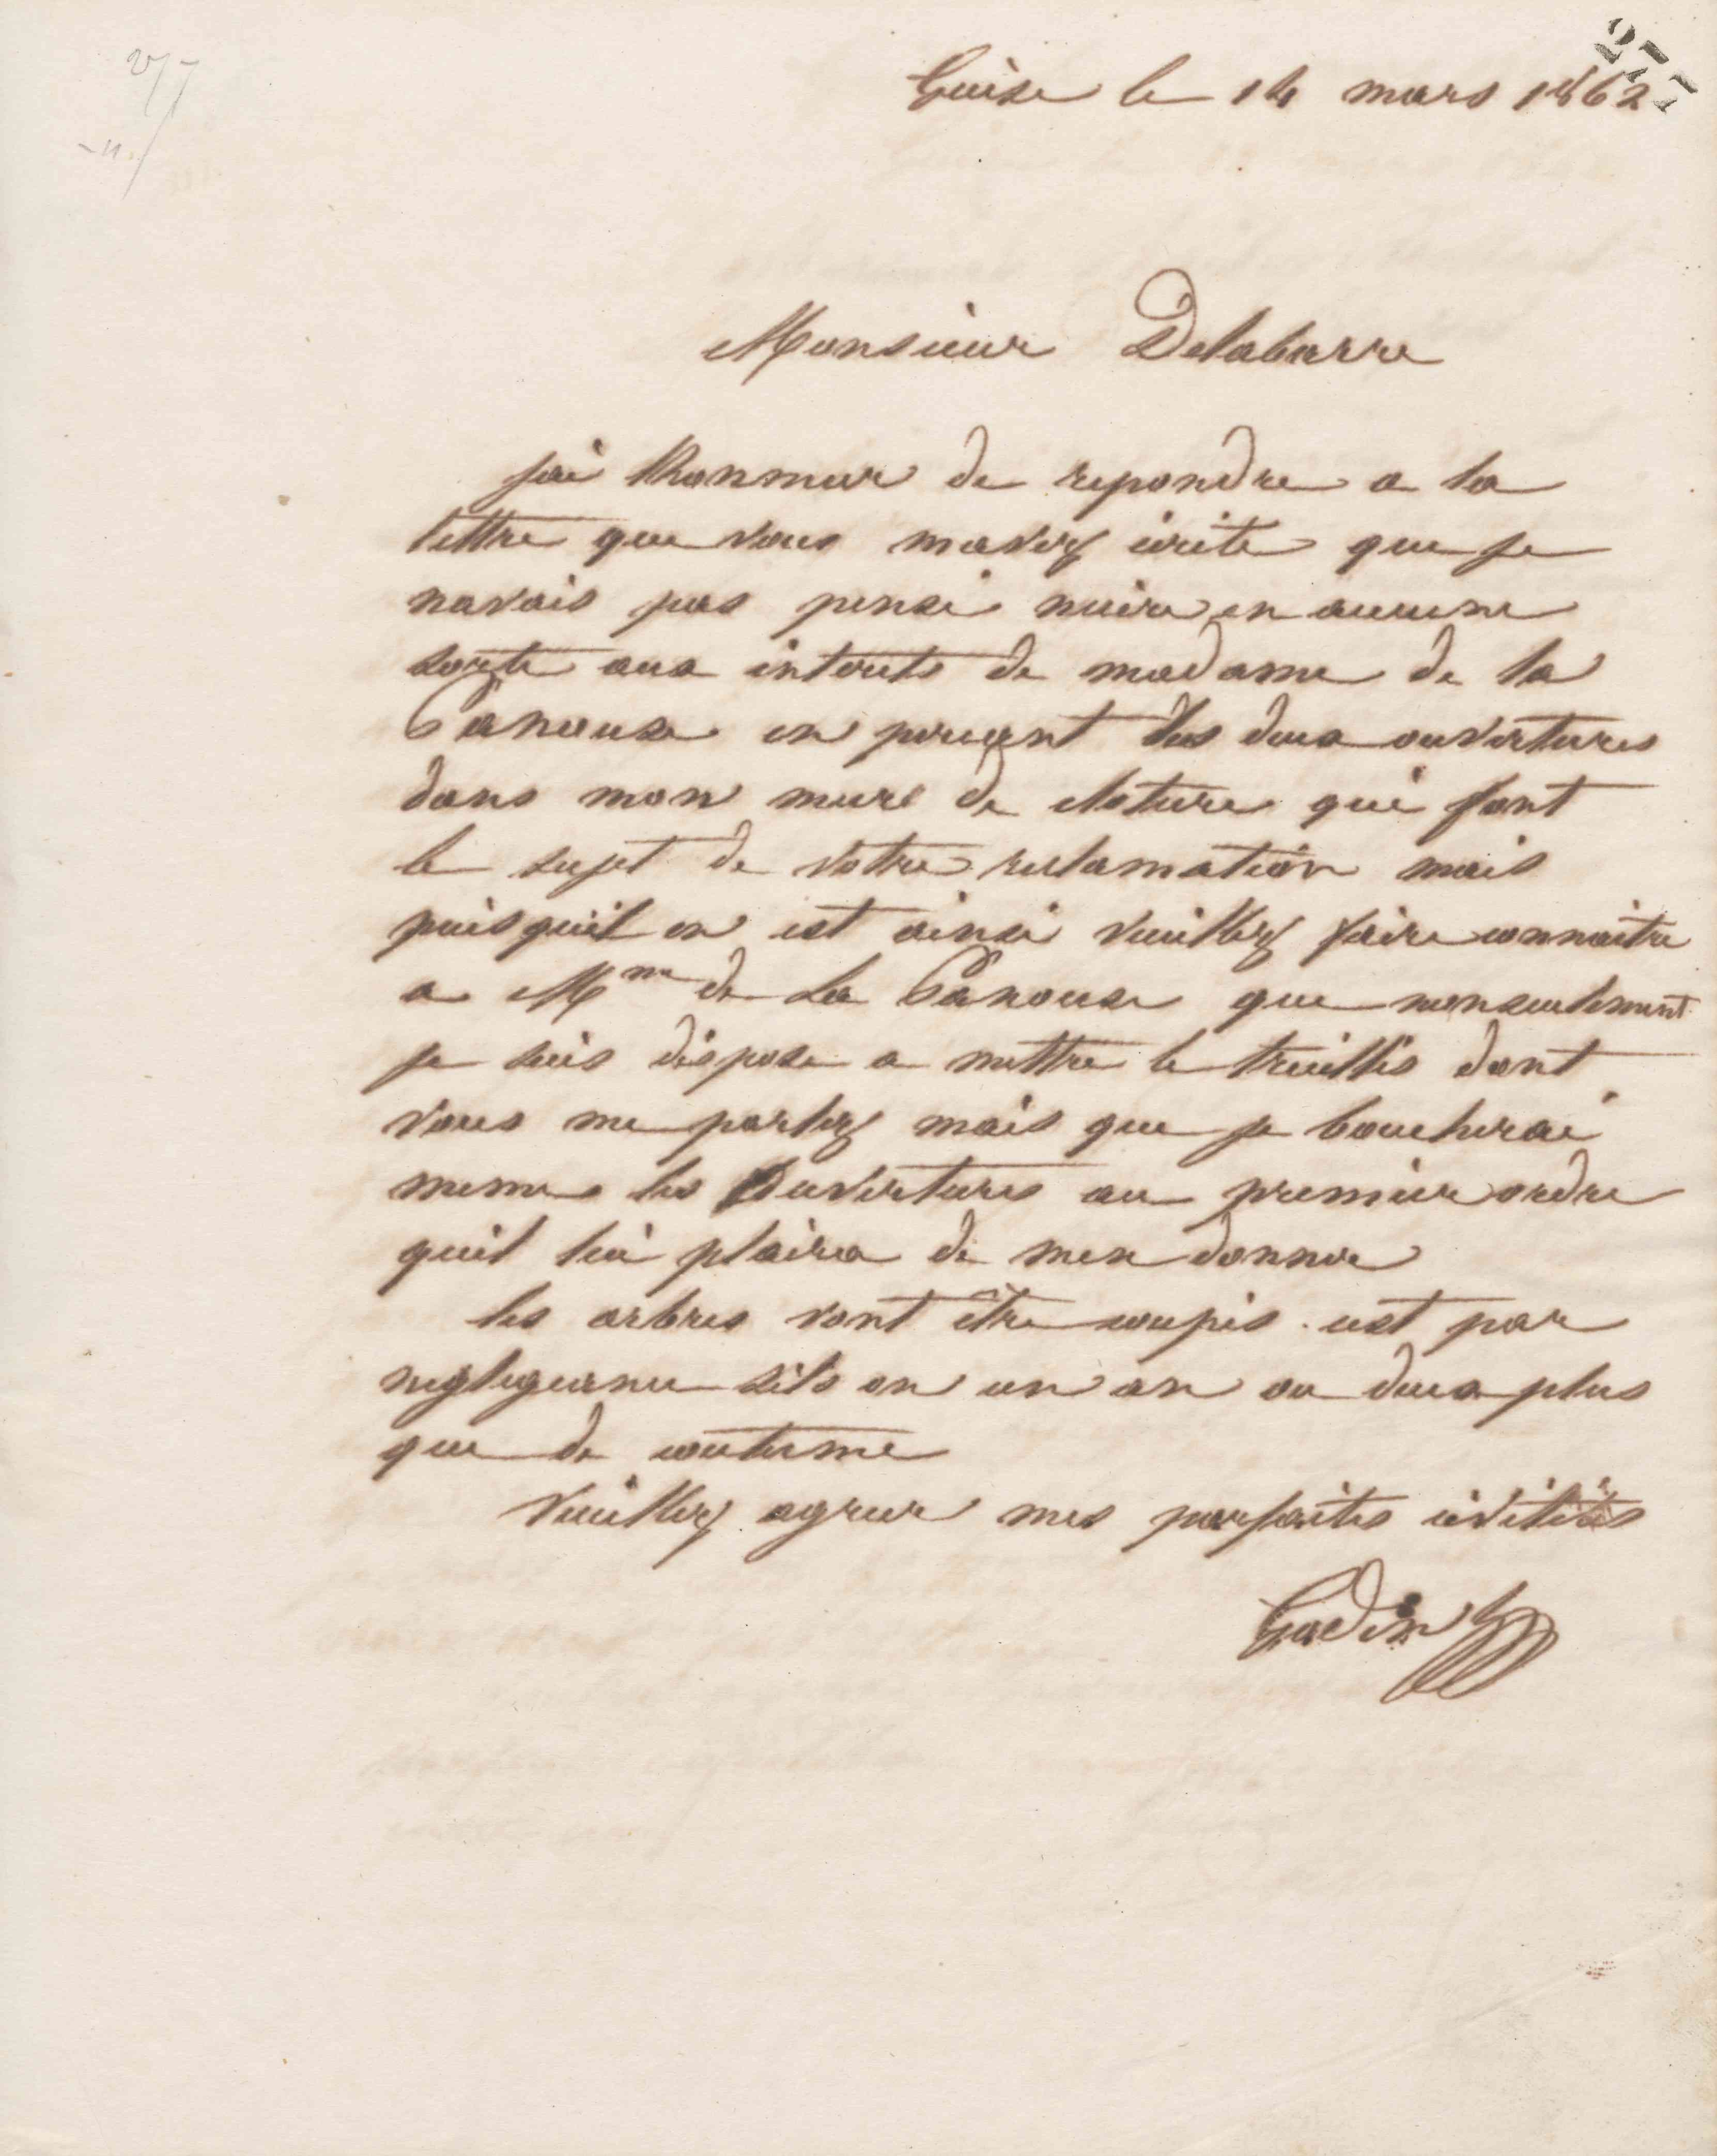 277
277
Guise le 14 mars 1862
Monsieur Delabarre
jai lhonneur de repondre a la
lettre que vous mavez écrite que je
navais pas pensé nuire en aucune
sorte aux intérêts de madame de la
Panouse en perçant les deux ouvertures
dans mon mure de cloture qui font
le sujet de votre reclamation mais
puisquil en est ainsi veuillez faire connaitre
a Mme de La Panouse que nonseulement
je suis disposé a mettre le treillis dont
vous me parlez mais que je boucherai
meme les Ouvertures au premier ordre
quil lui plaira de men donner
les arbres vont être coupés. cest par
negligeance sils on un an ou deux plus
que de coutume
Veuillez agreer mes parfaites civilités
Godin